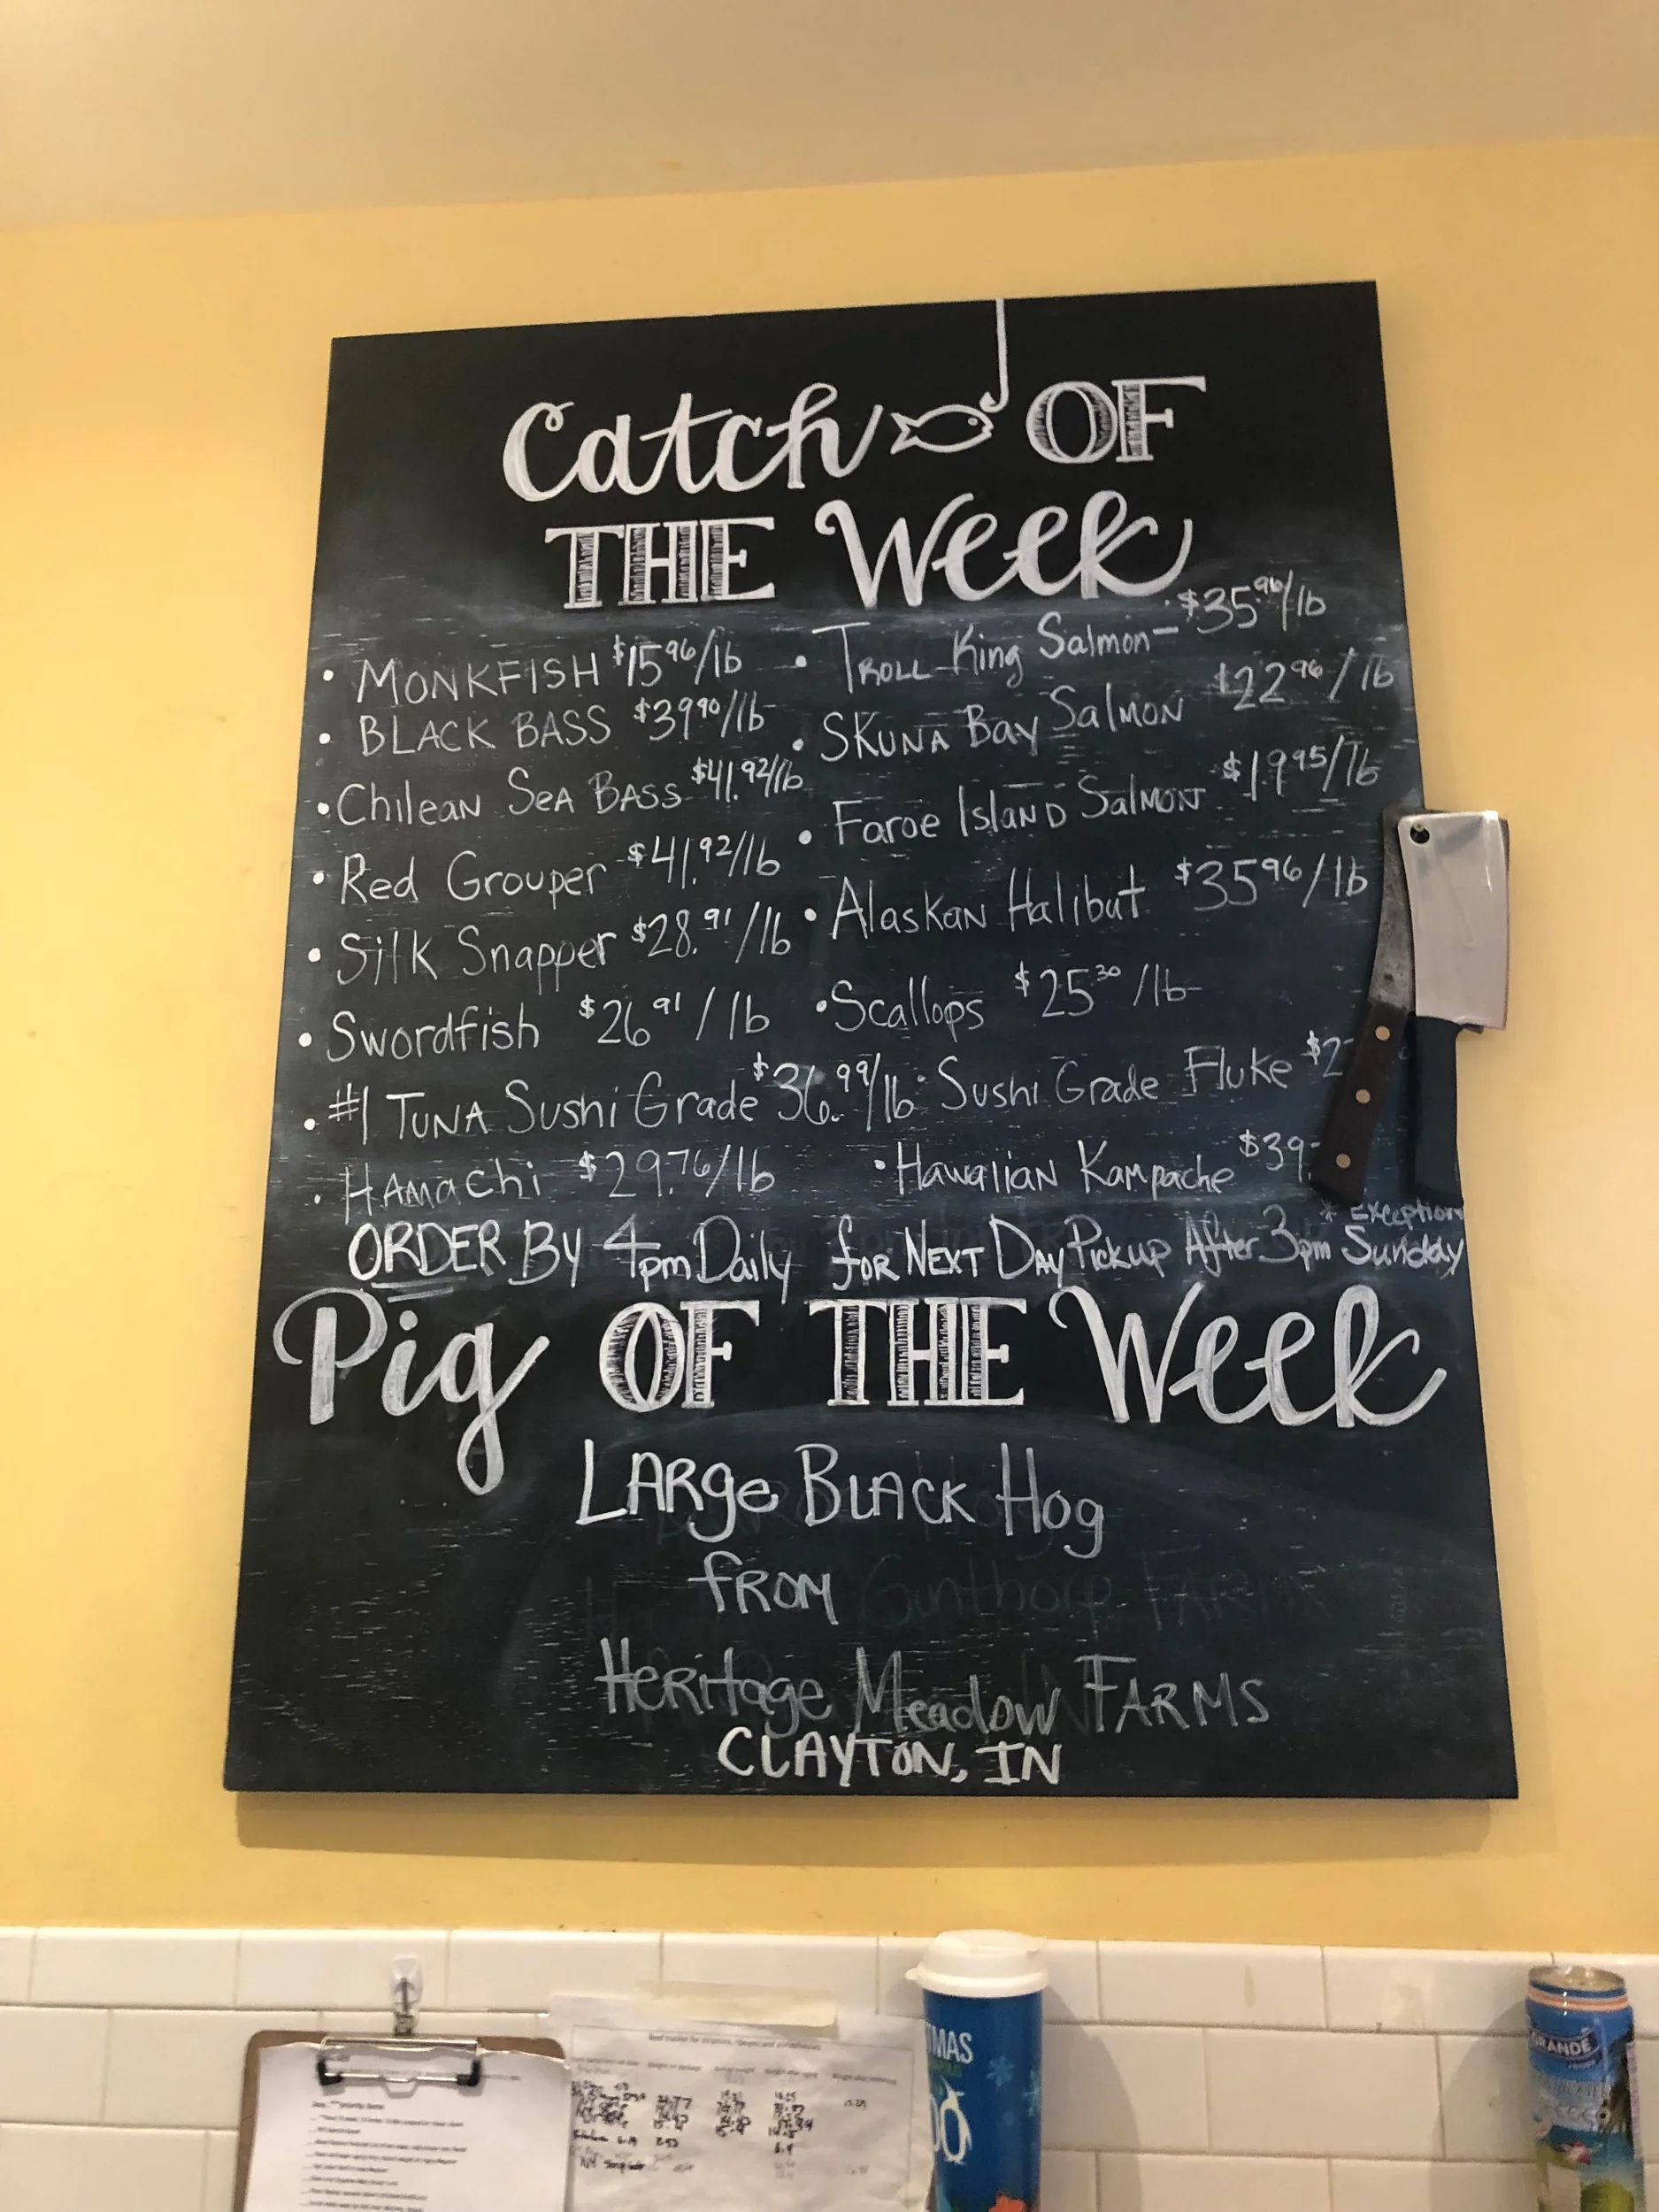 Catch OF
THE Week
• MONKFISH $15 96/lb
• BLACK BASS $39 90/lb
• Chilean Sea Bass $41.92/lb
• Red Grouper $41.92/lb
• Silk Snapper $28.91/lb
• Swordfish $26 91/lb
• #1 TUNA Sushi Grade $36.99/lb
• HAMachi $29.76/lb
• TROLL King Salmon - $35 96/lb
• SKUNA Bay Salmon $22 96/lb
• Faroe Island Salmon $19 95/lb
• Alaskan Halibut $35 96/lb
• Scallops $25 30/lb
• Sushi Grade Fluke $2
• Hawaiian Kampache $39
* Exception
ORDER By 4pm Daily for NEXT Day Pickup After 3pm Sunday
Pig OF THE Week
LARge BLACK Hog
fROM
Heritage Meadow FARMS
CLAYTON, IN
MAS
RANDE